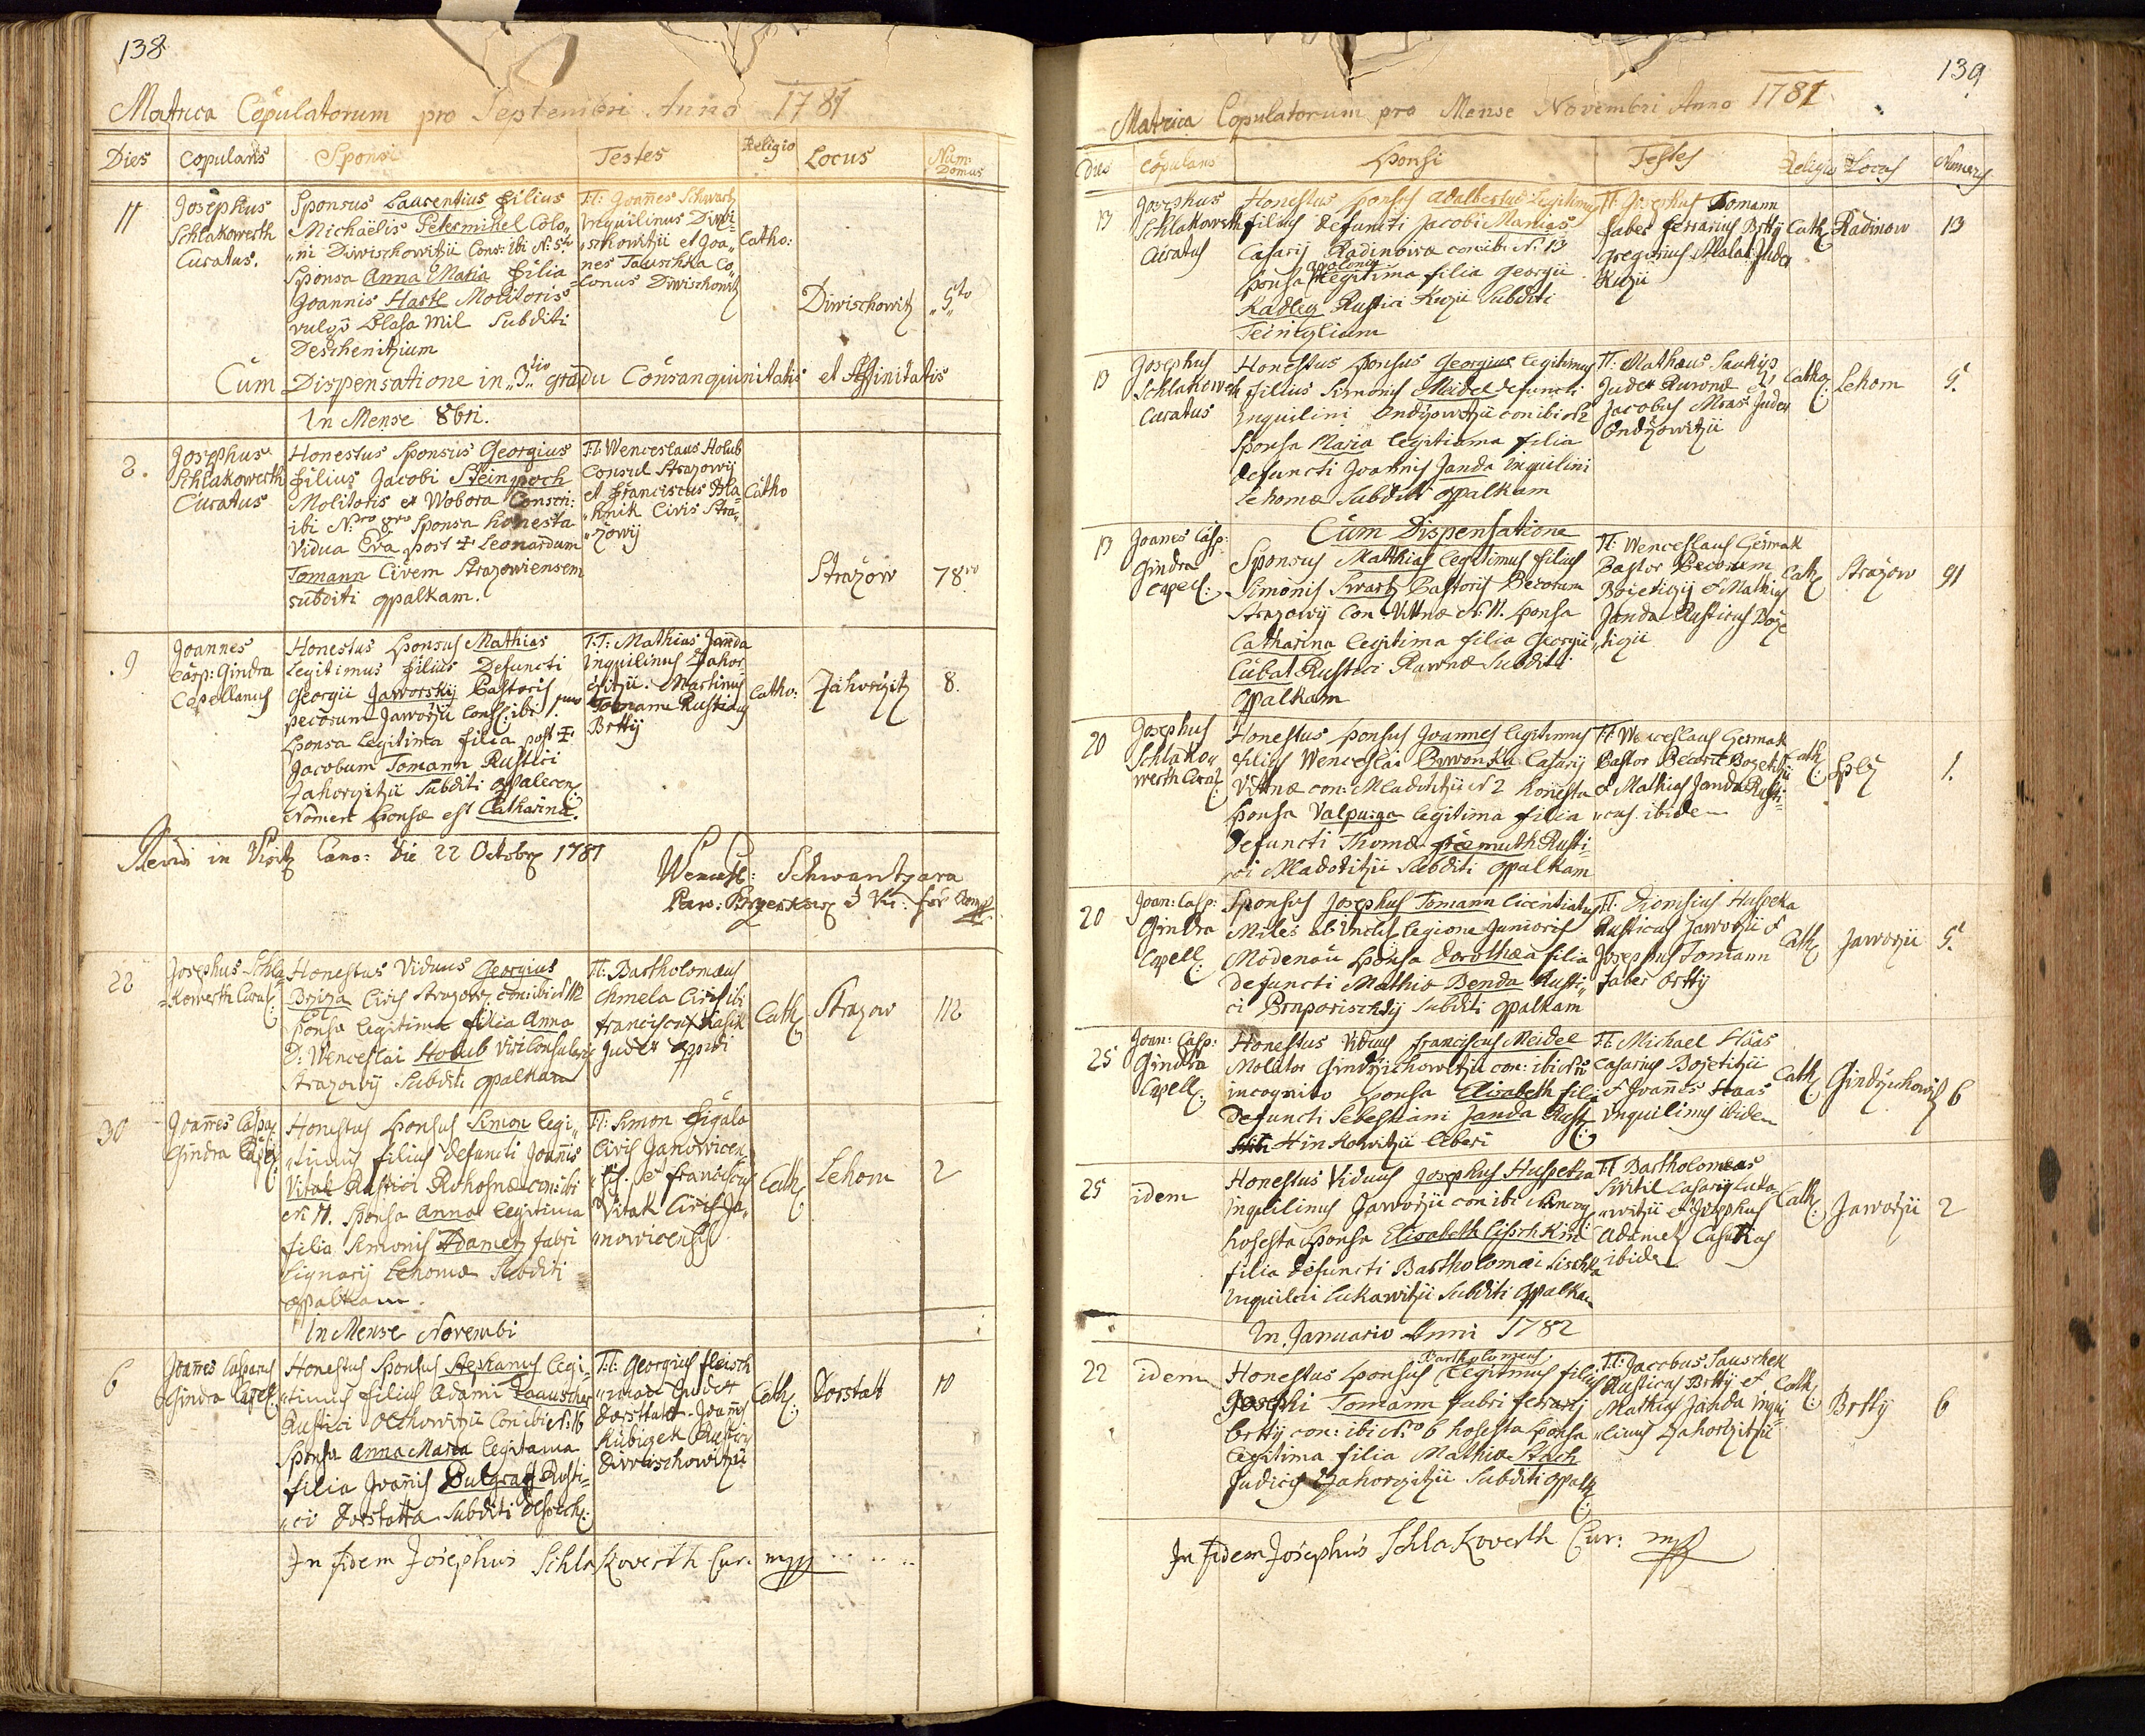 138
Matrica Copulatorum pro Septembri Anno 1781
Dies Copulans Sponsi Testes Religio Locus Num: Domus
11
Josephus
Schlakowerth
Curatus.
Sponsus Laurentius filius
Michaëlis Petermihel Colo„
„ni Diwischowitzii Cons: ibi N: 5to
Sponsa Anna Maria filia
Joannis Hastl Molitoris
vulgò Blasa Mil Subditi
Deschenitzium
TT: Joañes Schwartz
Inquilinus Diwi=
„schowitzii et Joa„
nes Tauschka Co„
lonus Diwischowitz
Catho:
Diwischowitz
„5to„
Cum Dispensatione in „3„tio gradu Consanquinitatis et Affinitatis
In Mense 8bri.
2.
Josephus
Schlakowerth
Curatus
Honestus Sponsus Georgius
filius Jacobi Steinpoch
Molitoris ex Wobora Conscri:
ibi Nro 9no Sponsa honesta
Vidua Eva post ‡ Leonardum
Tomann Civem Strazowiensem
subditi opalkam.
TT: Wenceslaus Holub
Consul Strazowij
et Franciscus Bla=
„hnik Civis Stra„
„zowij
Catho
Strazow
78vo
.9
Joannes
Casp: Gindra
Capellanus
Honestus Sponsus Mathias
Legitimus filius Defuncti
Georgii Jaworsky Pastoris
pecorum Jaworzii Cons: ibi 1mo
Sponsa legitima filia post ‡
Jacobum Tomann Rustici
Zahorzitzii Subditi opalecen:
Nomen Sponsæ est Catharina.
T:T: Mathias Janda
Inquilinus Zahor
zitzii. Martinus
Tomann Rusticus
Brtty
Catho:
Zahorzitz
8.
Revidi in Visit: Cano: Die 22 Octobr: 1781
Wencesl: Schwantzara
22
Josephus Schla
=kowerth Curat:
Honestus Viduus Georgius
Brziza Civis Strazow: con: ibi N 112
Sponsa legitima filia Anna
D: Wenceslai Holub Viri Consularis
Strazowij Subditi opalkam
TT: Bartholomæus
Chmela Civis ibi
Franciscus Kasik
Judex oppidi
Cath:
Strazow
112
30
Joañes Caspar
Gindra Capel:
Honestus Sponsus Simon legi„
„timus filius defuncti Joañis
Vitak Rustici Rohosnæ con: ibi
N: 11. Sponsa Anna legitima
filia Simonis Adametz fabri
Lignarij Lehomæ Subditi
opalkam.
TT: Simon Figala
Civis Janowicen„
„s: & Franciscus
Vitak Civis Ja„
„nowicensis
Cath:
Lehom
2
In Mense Novembri
6
Joañes Casparus
Gindra Capell:
Honestus Sponsus Stephanus legi=
„timus filius Adami Raauscher
Rustici Olchowitzii Con: ibi N: 16
Sponsa Anna Maria legitima
filia Joañis Pulgraf Rusti=
„ci Dorstatta Subditi Desech:
T:T: Georgius Fleisch
„man Judex
Dorstatt. Joañes
Kubizek Rusticus
Diwischowitzii
Cath:
Dorstatt
10
In fidem Josephus Schlakowerth Cur: mpp
139
Matrica Copulatorum pro Mense Novembri Anno 1781
Dies Copulans Sponsi Testes Religio Locus Numerus
13
Josephus
Schlakowerth
Curatus
Honestus Sponsus Adalbertus Legitimus
filius defuncti Jacobi Mathias
Casarij Radinowa con: ibi N: 13
Apolonia
Sponsa legitima filia Georgii
Kadlez Rustici Kuzii Subditi
Teinizlium
TT: Josephus Tomann
faber ferrarius Brtty
Gregorius Malat Judex
Kuzii
Cath:
Radinow
13
13
Josephus
Schlakowerth
Curatus
Honestus Sponsus Georgius legitimus
filius Simonis Meidel defuncti
Inquilini Ondrzowitzii con: ibi N 2
Sponsa Maria legitima filia
defuncti Joannis Janda Inquilini
Lehomæ Subditi opalkam
TT: Mathæus
Judex Rawnæ et
Jacobus Mras Judex
Ondrzowitzii
Catho:
Lehom
5.
Cum Dispensatione
13
Joanes Casp:
Gindra
Capell:
Sponsus Matthias legitimus filius
Simonis Swartz Pastoris Pecorum
Strazowij Con: Vittnæ N: 11. Sponsa
Catharina legitima filia Georgii
Cubat Rustici Rawnæ Subditi
Opalkam
TT: Wenceslaus Germak
Pastor Pecorum
Bozietizii & Mathias
Janda Rusticus Boze
„tizii
Cath:
Strazow
91
20
Josephus
Schlako„
werth Curat:
Honestus Sponsus Joannes legitimus
filius Wenceslai Biwonka Casarij
Vittnæ con: Mladotitzii N 2 honesta
Sponsa Valpurga legitima filia
Defuncti Thomæ Freimuth Rusti=
ci Mladotitzii Subditi opalkam
TT: Wenceslaus Germak
Pastor Pecoru: Bozetitzii
& Mathias Janda Rusti=
„cus ibidem
Cath:
1.
20
Joan: Casp:
Gindra
Capell:
Sponsus Josephus Tomann licentiatus
Miles ab Inclit: legione Junioris
Modenau Sponsa Dorothæa filia
Defuncti Mathiæ Benda Rusti„
ci Prnporischtij Subditi opalkam
TT: Dionisius Huspeka
Rusticus Jaworzii &
Josephus Tomann
faber Brtty
Cath:
Jaworzii
5.
25
Joan: Casp:
Gindra
Capell:
Honestus Viduus Franciscus Meidel
Molitor Gindrzichowitzii con: ibi Nro
incognito Sponsa Elisabeth filia
Defuncti Sebestiani Janda Rust:
Hinkowitzii liberi
TT: Michael Haas
Casarius Bozetitzii
& Joañes Haas
Inquilinus ibidem
Cath:
Gindrzichowitz
6
25
idem
Honestus Viduus Josephus Huspeka
Inquilinus Jaworzii con: ibi N incog:
honesta Sponsa Elisabeth Lisschkin
filia defuncti Bartholomæi Lischka
Inquilini Lukawitzii Subditi opalkam
TT Bartholomeas
Sivitil Casarig Luka=
„witzii & Josephus
Adametz Casarius
ibidem
Cath:
Jaworzii
2
In Januario Anni 1782
22
idem
Bartholomeus
Honestus Sponsus legitimus filius
Josephi Tomann fabri ferrarij
Brttij con: ibi Nro 6 honesta Sponsa
legitima filia Mathiæ Stach
Judicis Zahorzitzii Subditi opalk:
TT: Jacobus Sauschek
Rusticus Brtty et
Mathias Janda Inqui
„linus Zahorzitzii
Cath:
Brtty
6
In fidem Josephus Schlakowerth Cur: mpp